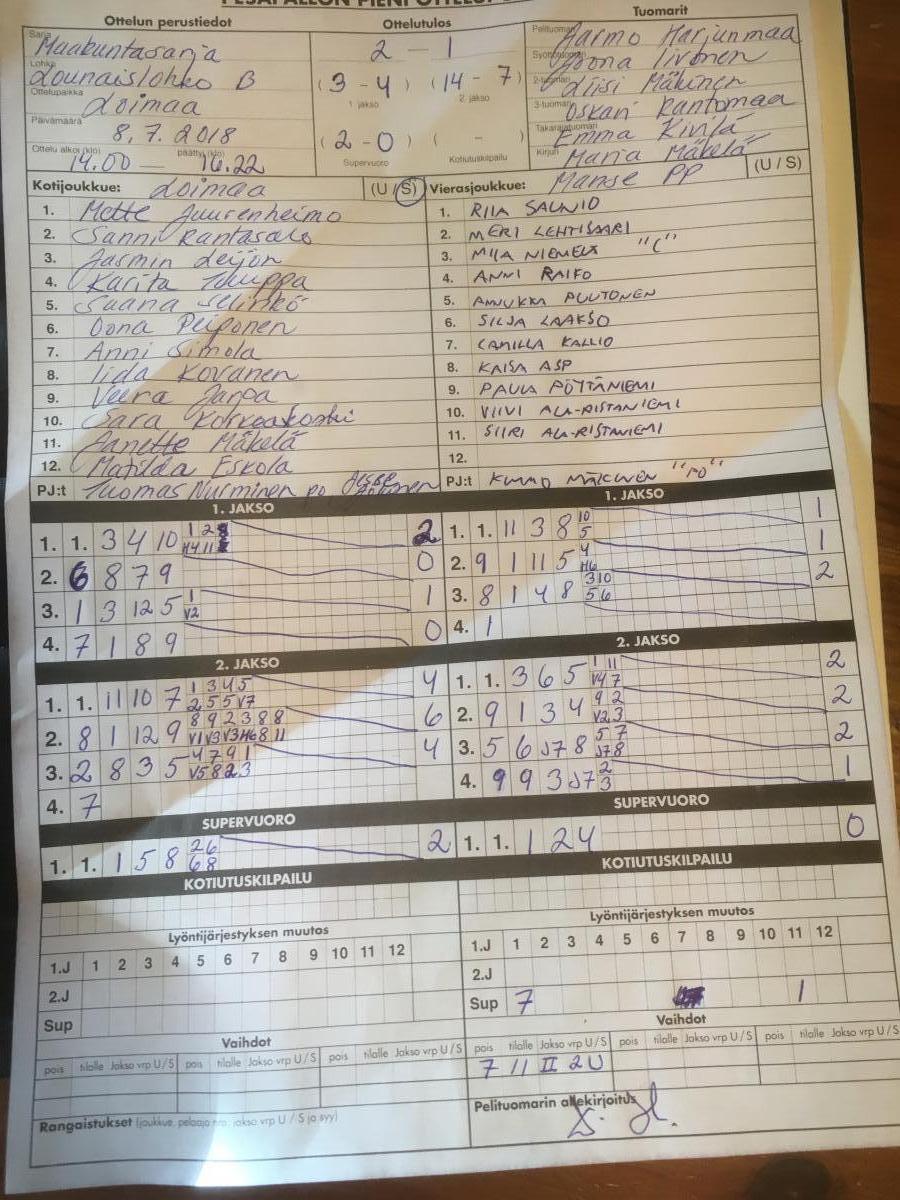 PESÄPALLON PIENI OTTELUP
Ottelun perustiedot
Ottelutulos
Tuomarit
Sarja
Maakuntasarja
Lohko
Lounaislohko B
Ottelupaikka
Loimaa
Päivämäärä
8.7.2018
Ottelu alkoi (klo) päättyi (klo)
14.00 — 16.22
2 - 1
(3 - 4) (14 - 7)
1. jakso 2. jakso
(2 - 0) ( - )
Supervuoro Kotiutuskilpailu
Pelituomari
Jarmo Harjunmaa
Syöttötuomari
Joona Iivonen
2-tuomari
Liisi Mäkinen
3-tuomari
Oskari Rantomaa
Takarajatuomari
Emma Kivilä
Kirjuri
Maria Mäkelä
Kotijoukkue: Loimaa (U / S)
Vierasjoukkue: Manse PP (U / S)
1. Mette Juurenheimo
2. Sanni Rantasalo
3. Jasmin Leijon
4. Karita
5. Saana
6. Oona Peiponen
7. Anni Simola
8. Iida Kovanen
9. Veera Jarpa
10. Sara Korkeakoski
11. Janette Mäkelä
12. Matilda Eskola
PJ:t Tuomas Nurminen PO
1. RIIA SAUNIO
2. MERI LEHTISAARI
3. MIIA NIEMELÄ "C"
4. ANNI RAIKO
5. ANNUKKA PUUTONEN
6. SILJA LAAKSO
7. CAMILLA KALLIO
8. KAISA ASP
9. PAULA PÖYTÄNIEMI
10. VIIVI ALA-RISTANIEMI
11. SIIRI ALA-RISTANIEMI
12.
PJ:t KIMMO MÄKINEN "PO"
1. JAKSO
1. 1. 3 4 10 1 2 H4 11 2
2. 6 8 7 9 0
3. 1 3 12 5 1 V2 1
4. 7 1 8 9 0
1. JAKSO
1. 1. 11 3 8 10 5 1
2. 9 1 11 5 4 H6 1
3. 8 1 4 8 3 10 5 6 2
4. 1
2. JAKSO
1. 1. 11 10 7 1 3 4 5 2 5 5 V7 4
2. 8 1 12 9 8 9 2 3 8 8 V1 V3 V3 H6 8 11 6
3. 2 8 3 5 4 7 9 1 V5 8 2 3 4
4. 7
2. JAKSO
1. 1. 3 6 5 1 11 V4 7 2
2. 9 1 3 4 9 2 V2 3 2
3. 5 6 J7 8 5 7 J7 8 2
4. 9 9 3 J7 2 3 1
SUPERVUORO
1. 1. 1 5 8 2 6 6 8 2
SUPERVUORO
1. 1. 1 2 4 0
KOTIUTUSKILPAILU
KOTIUTUSKILPAILU
Lyöntijärjestyksen muutos
1.J 1 2 3 4 5 6 7 8 9 10 11 12
2.J
Sup
Lyöntijärjestyksen muutos
1.J 1 2 3 4 5 6 7 8 9 10 11 12
2.J
Sup 7 1
Vaihdot
pois tilalle Jakso vrp U / S pois tilalle Jakso vrp U / S pois tilalle Jakso vrp U / S
Vaihdot
pois tilalle Jakso vrp U / S pois tilalle Jakso vrp U / S pois tilalle Jakso vrp U / S
7 11 II 2U
Rangaistukset (joukkue, pelaaja nro, jakso vrp U / S ja syy)
Pelituomarin allekirjoitus